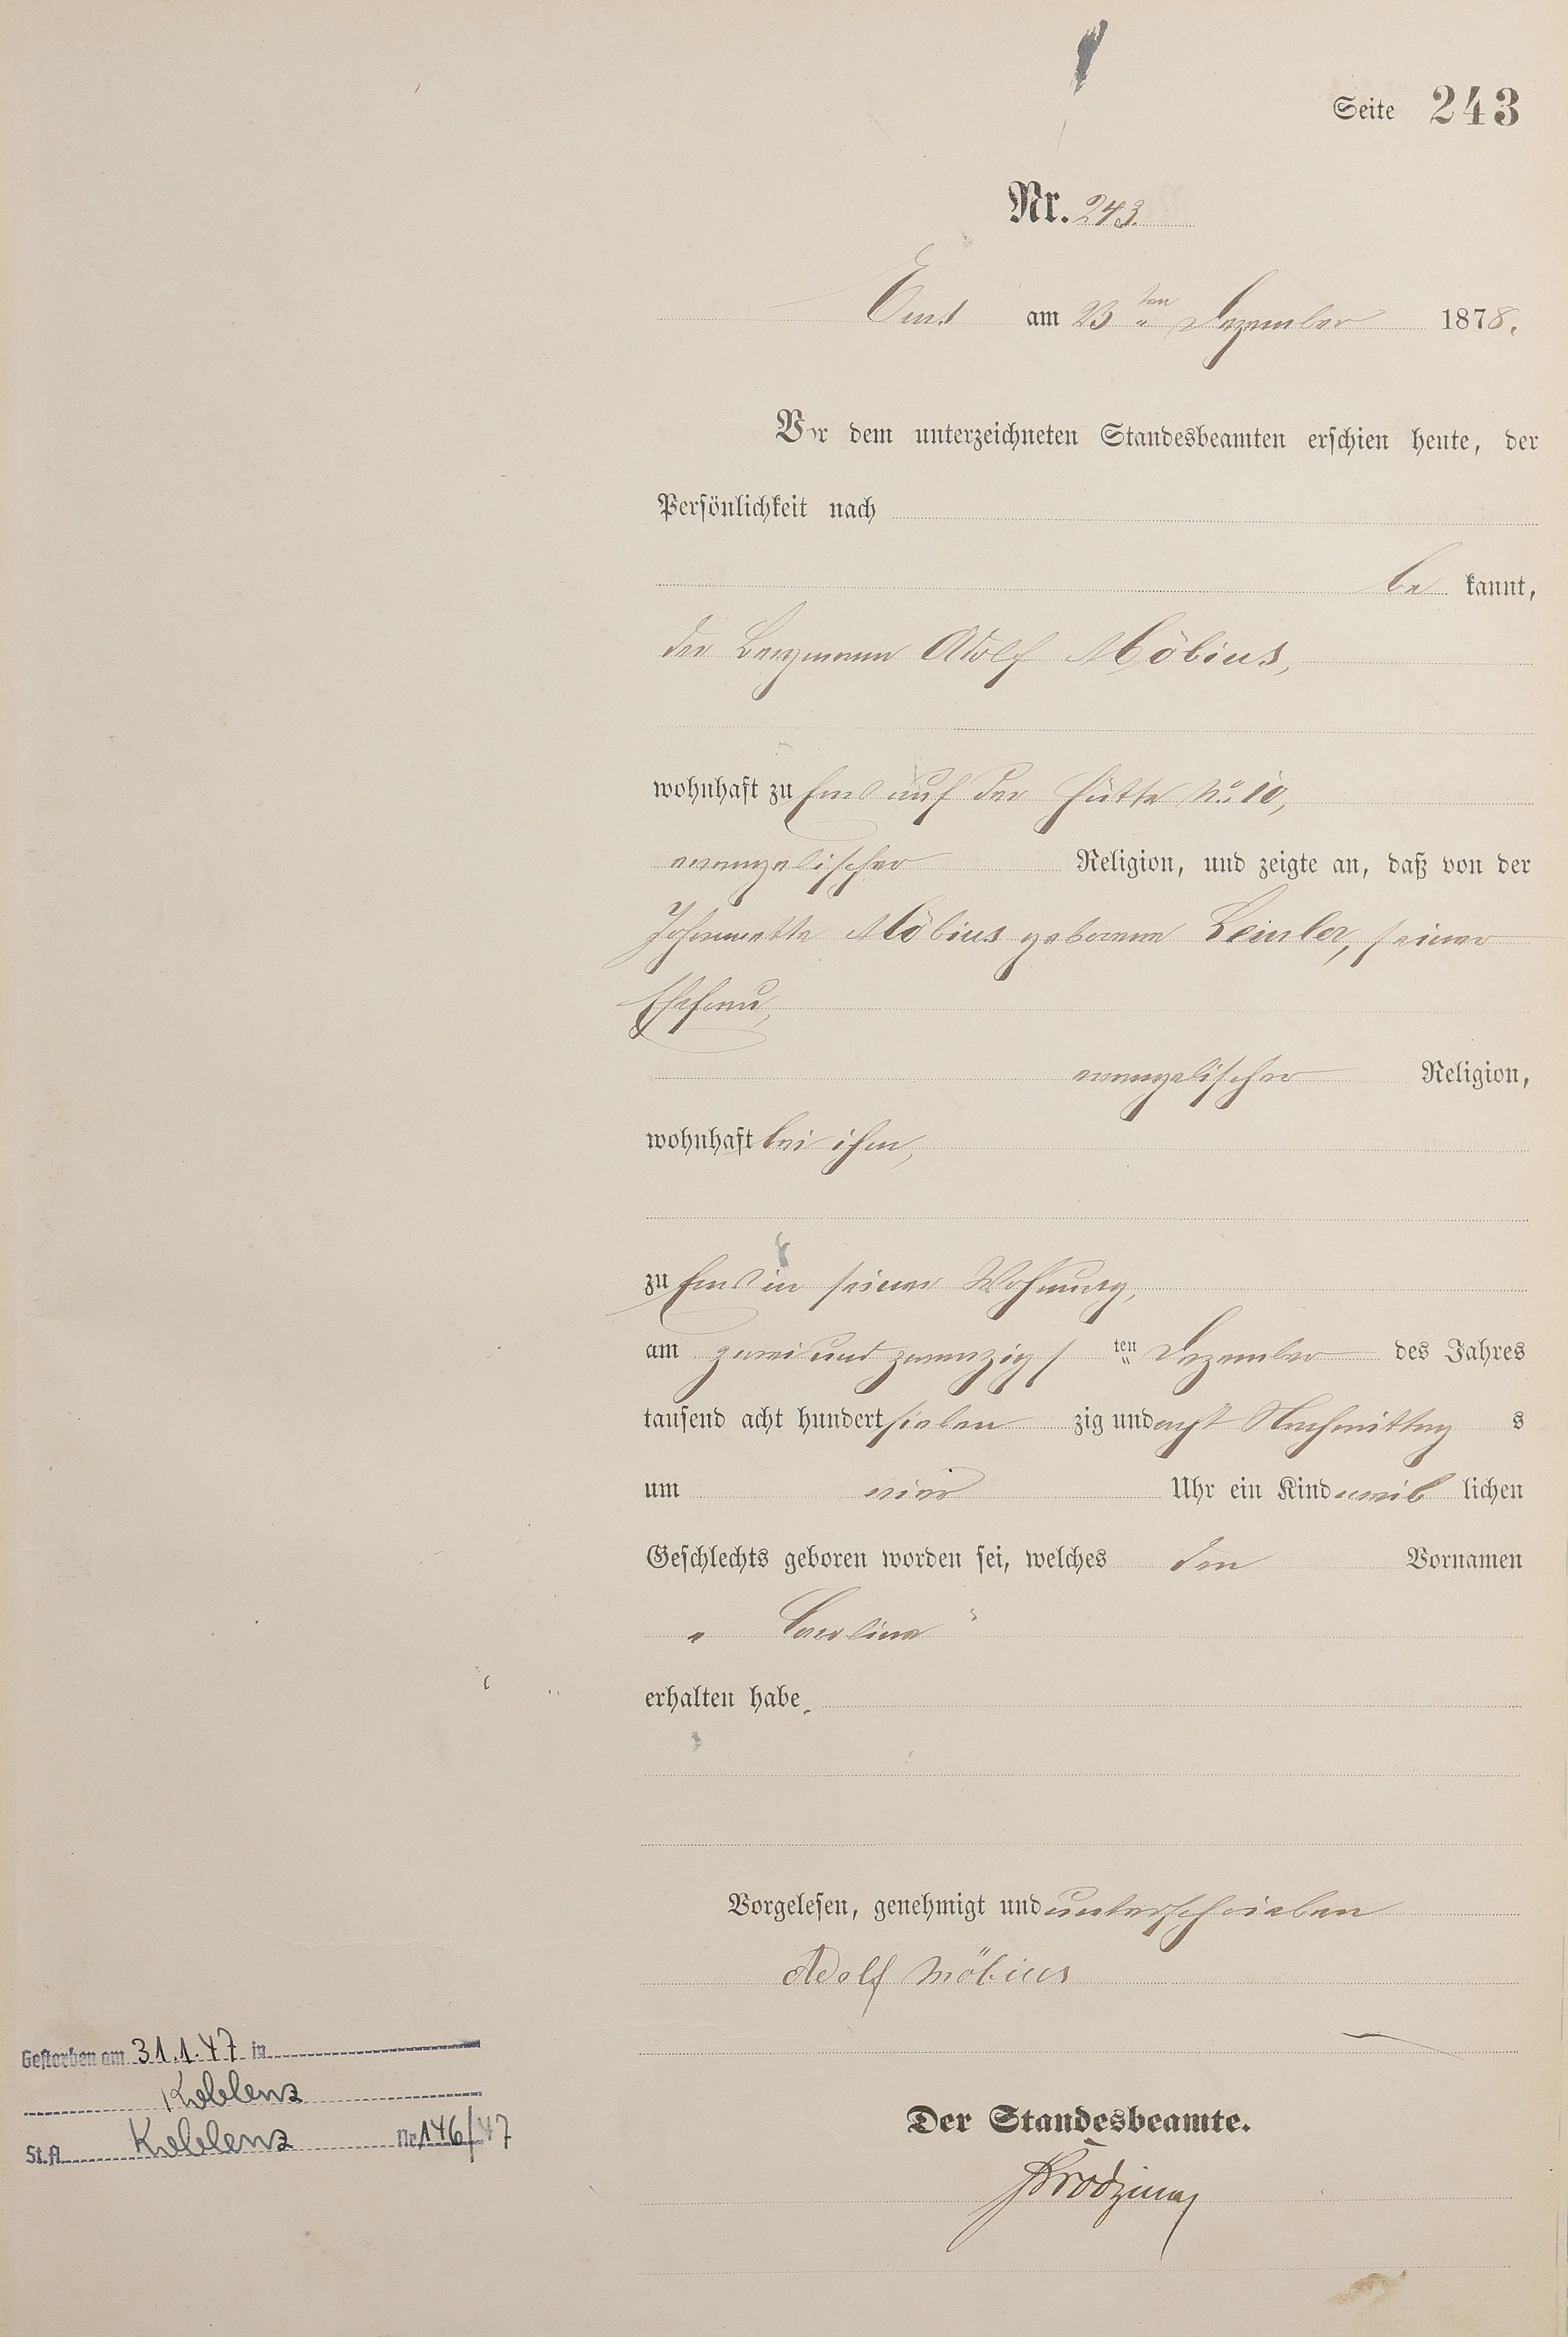 Seite 243
Nr. 243.
Ems am 23ten Dezember 1878.
Vor dem unterzeichneten Standesbeamten erschien heute, der
Persönlichkeit nach
be kannt,
der Bergmann Adolf Möbius,
wohnhaft zu Ems auf der Hütte No. 10,
evangelischer Religion, und zeigte an, daß von der
Johannette Möbius geborene Beinler, seiner
Ehefrau,
evangelischer Religion,
wohnhaft bei ihm,
zu Ems in seiner Wohnung,
am zwei und zwanzigs ten Dezember des Jahres
tausend acht hundert sieben zig und acht Nachmittag s
um vier Uhr ein Kind weib lichen
Geschlechts geboren worden sei, welches den Vornamen
„ Carolina “
erhalten habe.
Vorgelesen, genehmigt und unterschrieben
Adolf Möbius
Gestorben am 31.1.47 in
Koblenz
St.A. Koblenz Nr. 146/47
Der Standesbeamte.